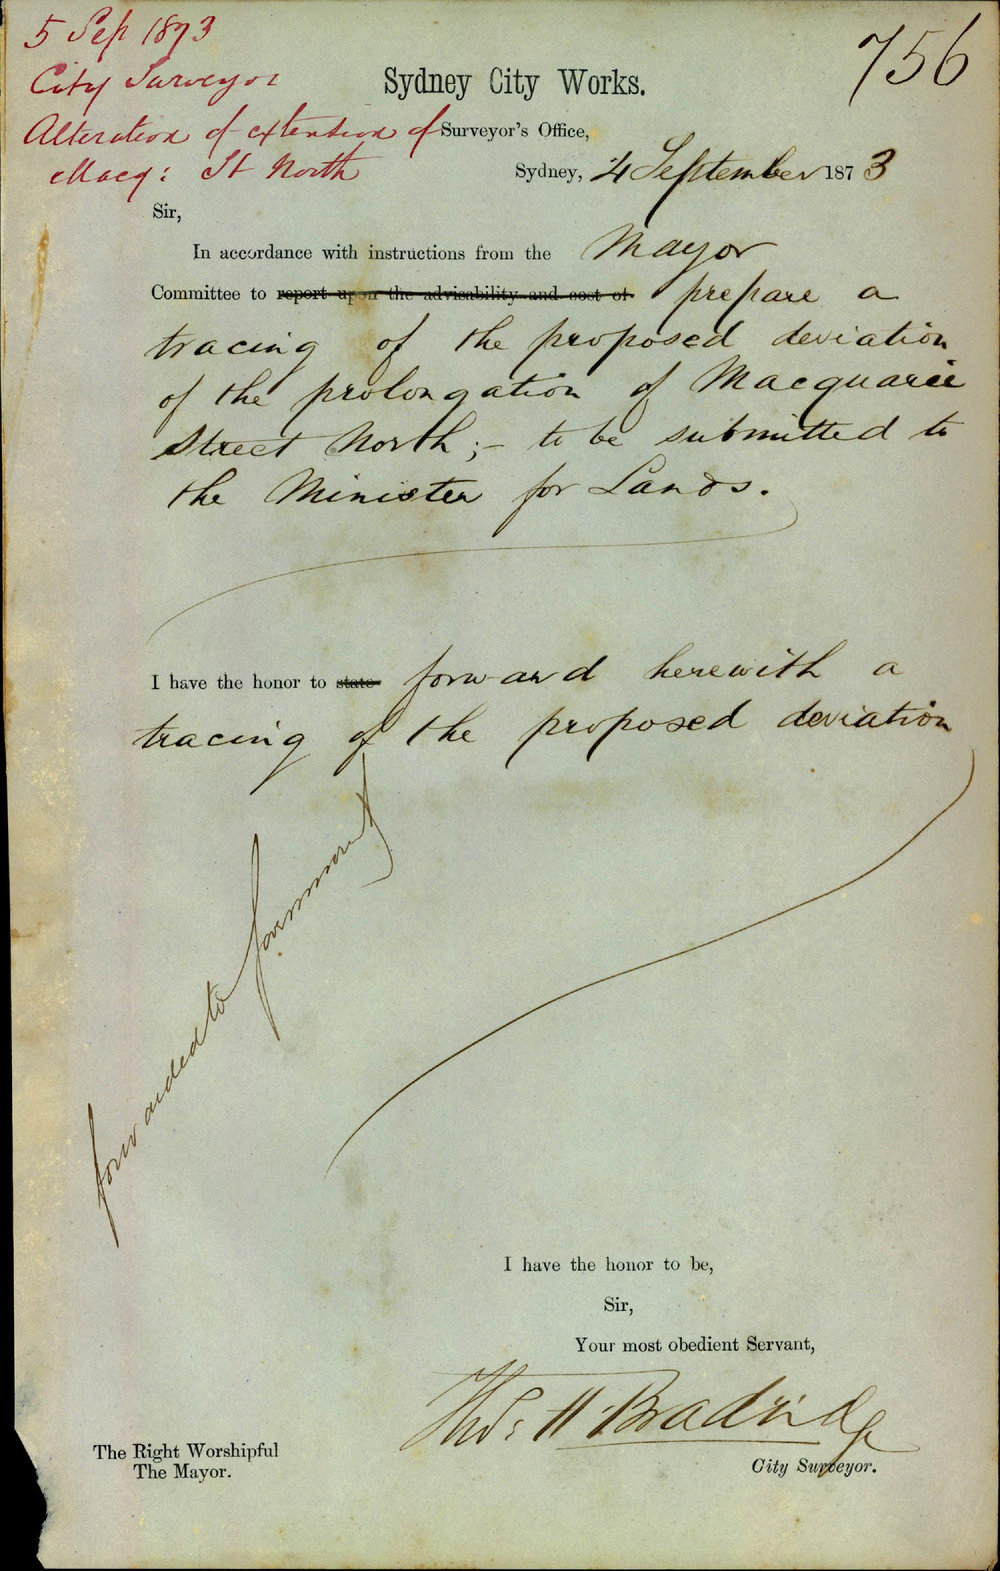 5 Sep 1873
756
City Surveyor
Sydney City Works.
Alteration of extension of
Surveyor's Office,
Macq: St North
Sydney, 4 September 1873
Sir,
In accordance with instructions from the Mayor
Committee to report upon the advisability and cost of prepare a
tracing of the proposed deviation
of the prolongation of Macquarie
Street North;- to be submitted to
the Minister for Lands.
I have the honor to state forward herewith a
tracing of the proposed deviation
forwarded to Government
I have the honor to be,
Sir,
Your most obedient Servant,
Thos: H. Bradridge
City Surveyor.
The Right Worshipful
The Mayor.